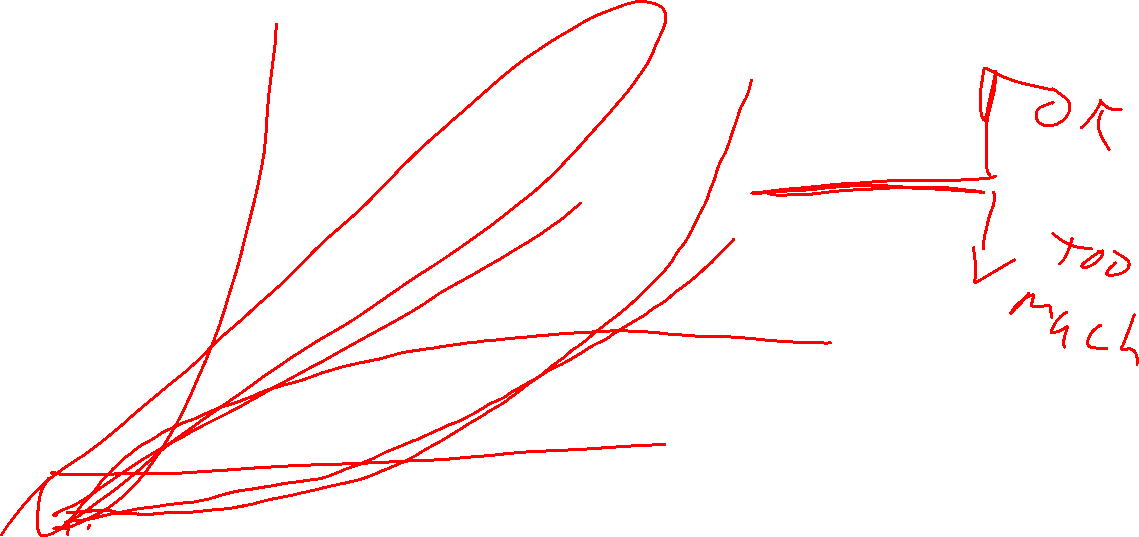 OK
TOO
MUCH